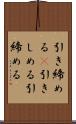 引き締め
る※引き
しめる引
締める